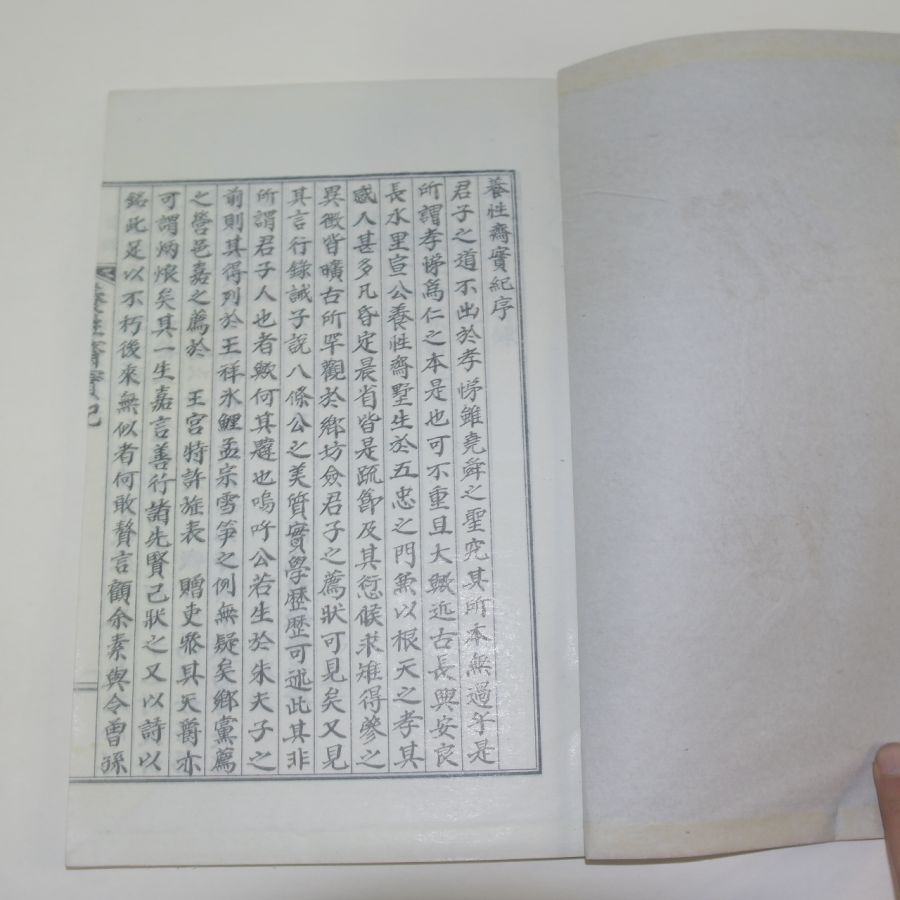 養性齋實紀序
君子之道不出於孝悌雖堯舜之聖究其所本無過乎是
所謂孝悌爲仁之本是也可不重且大歟近古長興安良
長水里宣公養性齋墅生於五忠之門兼以根天之孝其
感人甚多凡昏定晨省皆是疏節及其愆候求雉得蔘之
異徵皆曠古所罕觀於鄉坊僉君子之薦狀可見矣又見
其言行錄誡子說八條公之美質實學歷歷可述此其非
所謂君子人也者歟何其韙也嗚呼公若生於朱夫子之
前則其得列於王祥氷鯉孟宗雪笋之例無疑矣鄉黨薦
之營邑嘉之薦於 王宮特許旌表 贈吏叅其天爵亦
可謂炳烺矣其一生嘉言善行諸先賢己狀之又以詩以
銘此足以不朽後來無似者何敢贅言顧余素與令曾孫
養性齋實紀